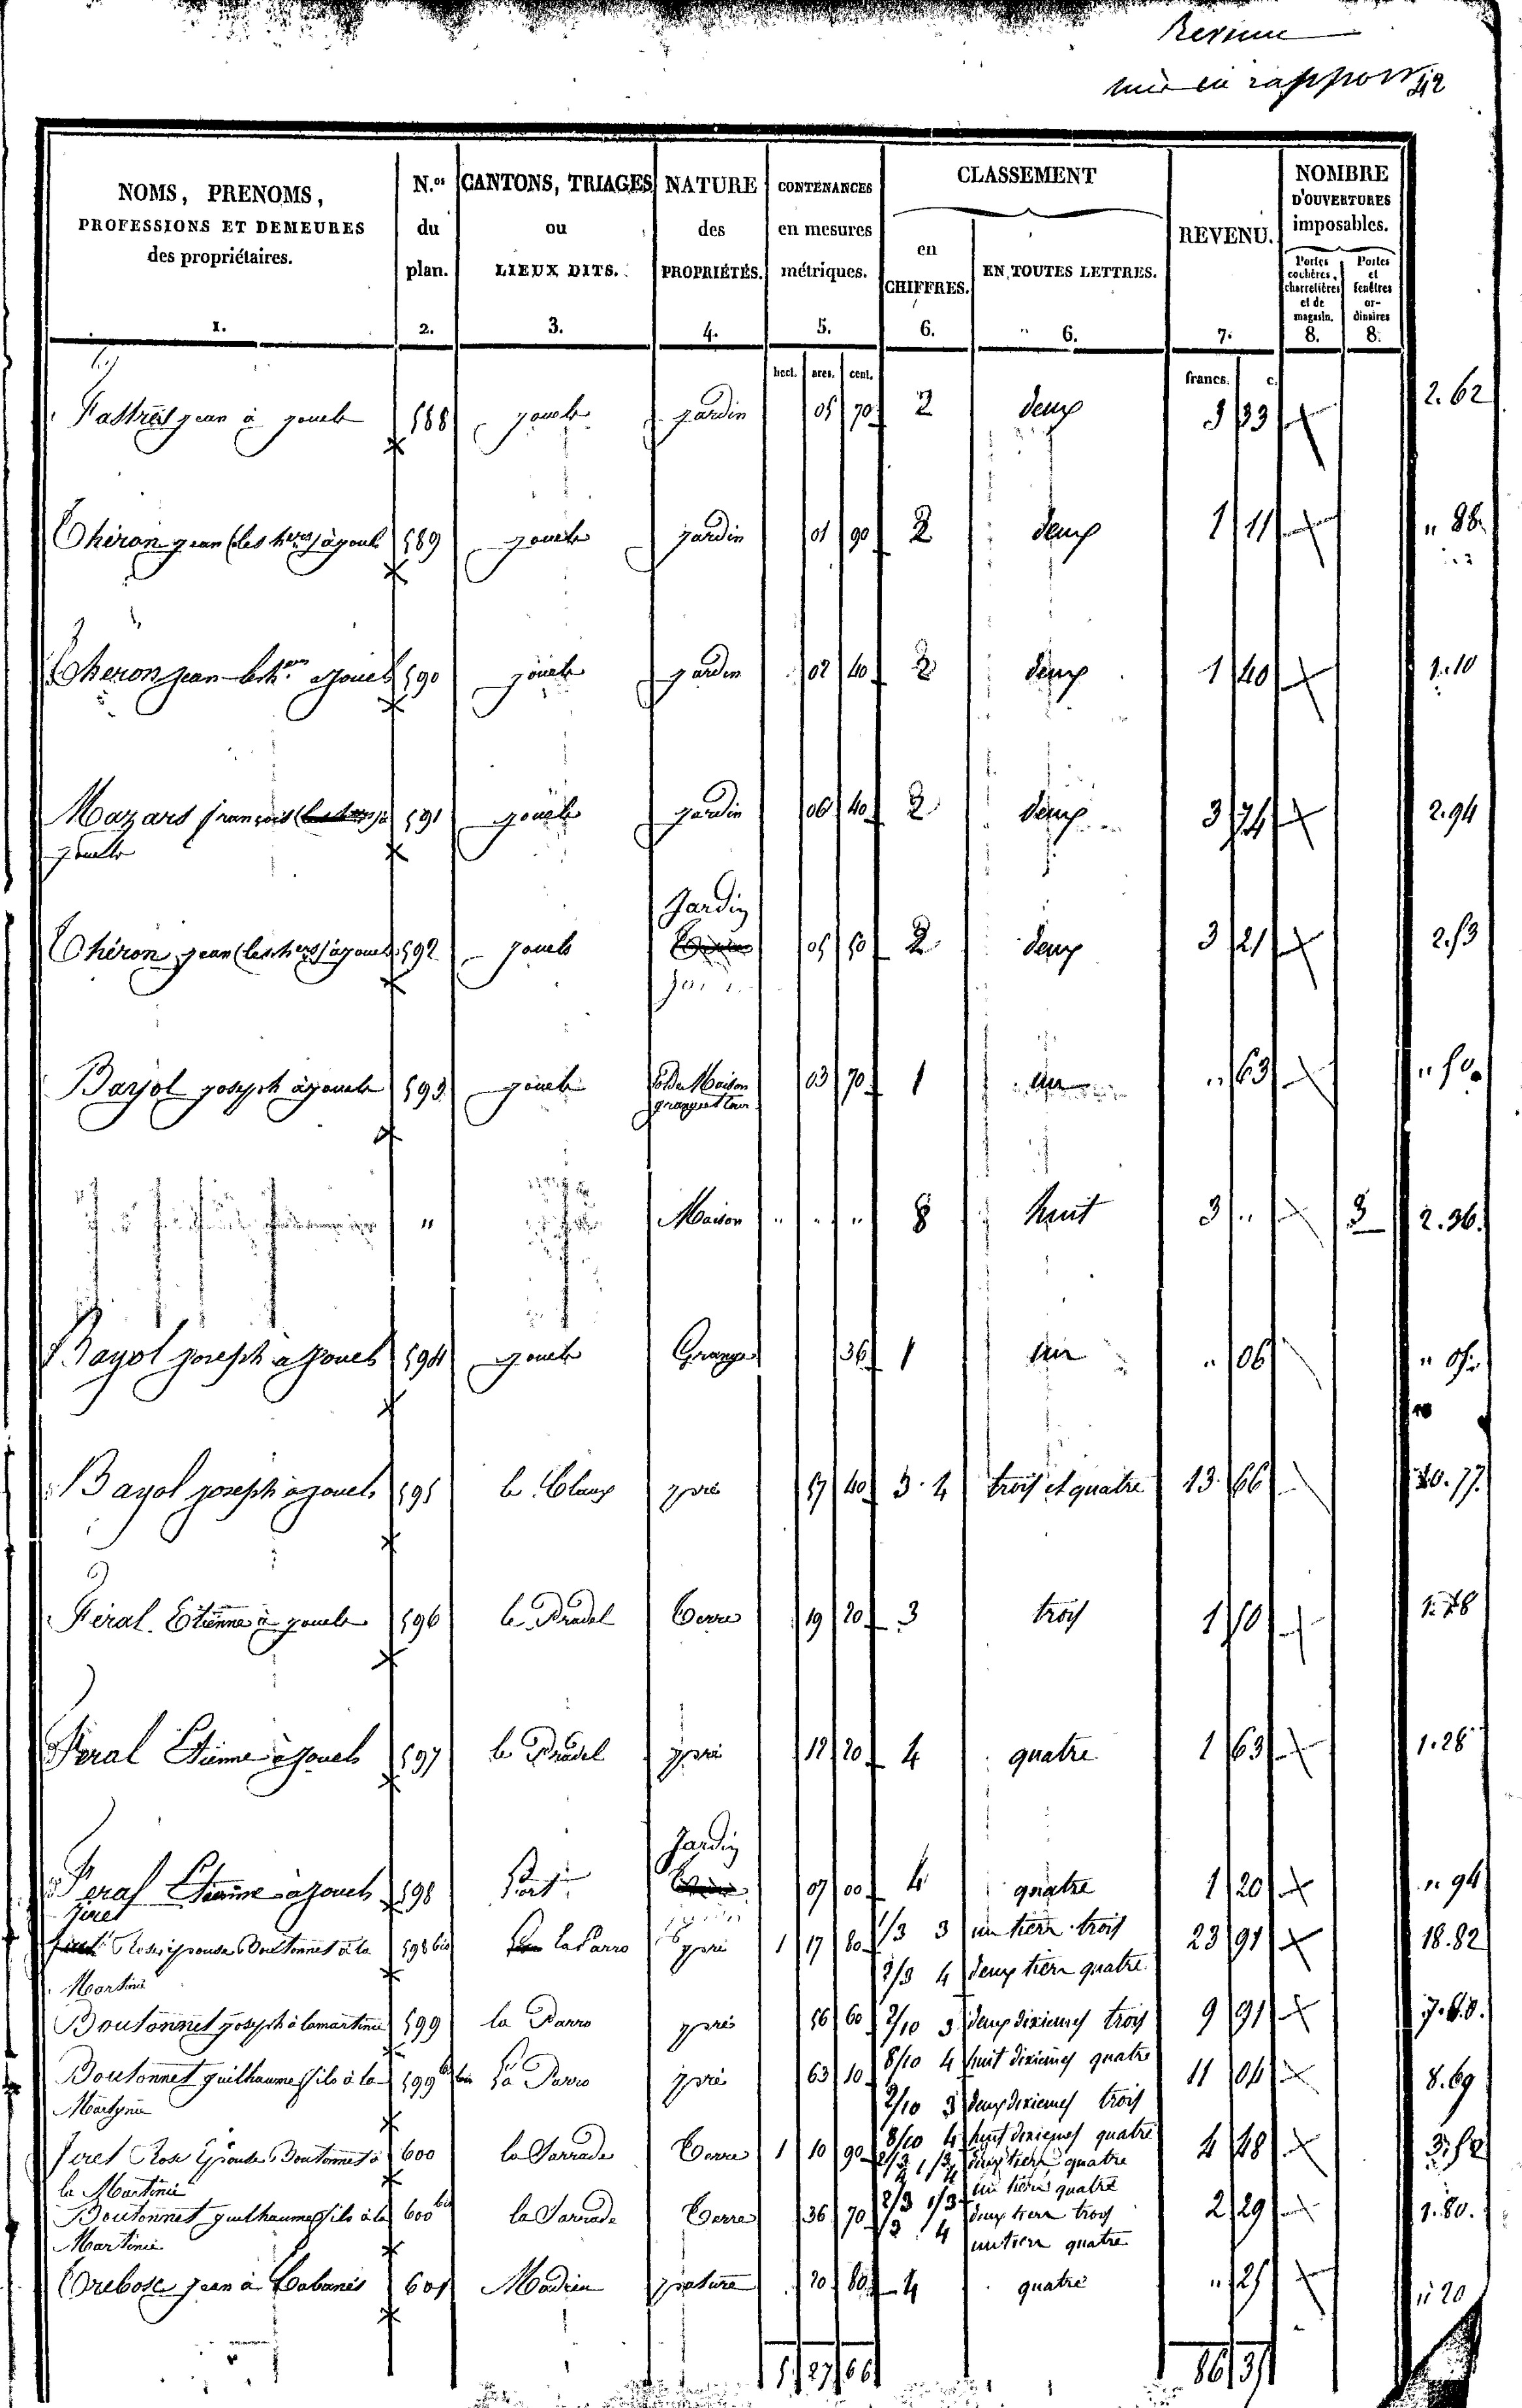 Revenu
mis en rapport 42
NOMS, PRENOMS, PROFESSIONS ET DEMEURES des propriétaires. 1.
N.os du plan. 2.
CANTONS, TRIAGES ou LIEUX DITS. 3.
NATURE des PROPRIÉTÉS. 4.
CONTENANCES en mesures métriques. 5.
CLASSEMENT
en CHIFFRES. 6.
EN TOUTES LETTRES. 6.
REVENU. 7.
NOMBRE D'OUVERTURES imposables.
Portes cochères, charretières et de magasin. 8.
Portes et fenêtres ordinaires 8.
hect. ares. cent. francs. c.
jean à jouels 588 jouels jardin 05 70 2 deux 3 33 2.62
Théron jean (les hers) à jouels 589 jouels jardin 01 90 2 deux 1 11 " 88
Theron jean les hers à jouels 590 jouels jardin 02 40 2 deux 1 40 1.10
Mazars françois à 591 jouels jardin 06 40 2 deux 3 74 2.94
jouels
Jardin
Théron jean (les hers) à jouels 592 jouels 05 50 2 deux 3 21 2.53
Bayol joseph à jouels 593 jouels Sol de Maison 03 70 1 un " 63 " 50
grange et cour
" Maison " " " 8 huit 3 " 3 2.36
Bayol joseph à jouels 594 jouels Grange 36 1 un " 06 " 05
Bayol joseph à jouels 595 le Claux pré 57 40 3.4 trois et quatre 13 66 10.77
Féral Etienne à jouels 596 le Pradel Terre 19 20 3 trois 1 50 1.18
Féral Etienne à jouels 597 le Pradel pré 12 20 4 quatre 1 63 1.28
Jardin
Feral Etienne à jouels 598 07 00 4 quatre 1 20 " 94
Firet
Rose épouse Boutonnet à la 598 bis la Parro pré 1 17 80 1/3 3 un tiers trois 23 91 18.82
Martinie 2/3 4 deux tiers quatre
Boutonnet joseph à lamartinie 599 la Parro pré 56 60 2/10 3 deux dixiemes trois 9 91 7.80
8/10 4 huit dixiemes quatre
Boutonnet guilhaume fils à la 599 bis la Parro pré 63 10 2/10 3 deux dixiemes trois 11 04 8.69
Martinie 8/10 4 huit dixiemes quatre
Firet Rose Epouse Boutonnet à 600 la Sarrade Terre 1 10 90 deux tiers quatre 4 48 3.52
la Martinie un tiers quatre
Boutonnet guilhaume fils à la 600 bis la Sarrade Terre 36 70 deux tiers trois 2 29 1.80
Martinie un tiers quatre
Trebosc jean à Cabanés 601 Madrieu pature 20 80 4 quatre " 25 " 20
5 27 66 86 35